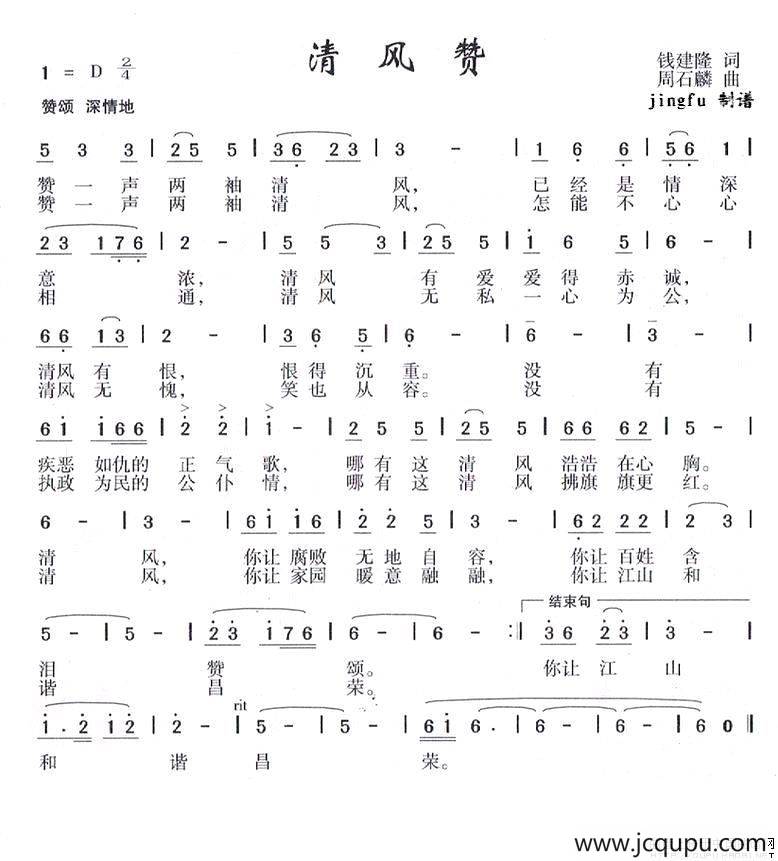 清风赞
1 = D 2/4
钱建隆 词
周石麟 曲
jingfu 制谱
赞颂 深情地
5 3 3 | 2 5 5 | 3 6 2 3 | 3 - | 1 6 6 | 5 6 1 |
赞一声两袖清 风， 已经是情深
赞一声两袖清 风， 怎能不心心
2 3 1 7 6 | 2 - | 5 5 3 | 2 5 5 | 1 6 5 | 5 - |
意 浓， 清风 有爱爱得赤诚，
相 通， 清风 无私一心为公，
6 6 1 3 | 2 - | 3 6 5 | 5 - | 6 - | 3 - |
清风有恨， 恨得沉重。 没 有
清风无愧， 笑也从容。 没 有
6 1 1 6 6 | 2 2 | 1 - | 2 5 5 | 2 5 5 | 6 6 6 2 | 5 - |
疾恶如仇的正气歌， 哪有这清风浩浩在心胸。
执政为民的公仆情， 哪有这清风拂旗旗更红。
6 - | 3 - | 6 1 1 6 | 2 2 5 | 3 - | 6 2 2 2 | 2 3 |
清 风， 你让腐败无地自容， 你让百姓含
清 风， 你让家园暖意融融， 你让江山和
结束句
5 - | 5 - | 2 3 1 7 6 | 6 - | 6 - :| 3 6 2 3 | 3 - |
泪 赞 颂。 你让江山
谐 昌 荣。
rit
1 . 2 1 2 | 2 - | 5 - | 5 - | 6 1 6 . | 6 - | 6 - | 6 0 ‖
和 谐 昌 荣。
www.jcqupu.com